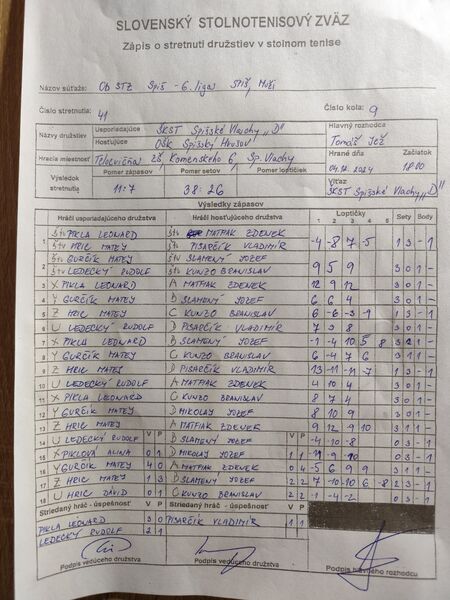 SLOVENSKÝ STOLNOTENISOVÝ ZVÄZ
Zápis o stretnutí družstiev v stolnom tenise
Názov súťaže: Ob STZ Spiš - 6. liga Spiš, Muži
Číslo stretnutia: 41 Číslo kola: 9
Názvy družstiev Usporiadajúce ŠKST Spišské Vlachy „D“ Hlavný rozhodca
Hosťujúce OŠK Spišský Hrušov Tomáš Jež
Hracia miestnosť Telocvičňa ZŠ, Komenského 6, Sp. Vlachy Hrané dňa Začiatok
04.12.2024 18:00
Výsledok stretnutia Pomer zápasov Pomer setov Pomer loptičiek Víťaz
11:7 38:26 ŠKST Spišské Vlachy „D“
Výsledky zápasov
Hráči usporiadajúceho družstva Hráči hosťujúceho družstva Loptičky Sety Body
1 2 3 4 5
štv PIKLA LEONARD štv MATFIAK ZDENEK
1 štv HRIC MATEJ PISARČIK VLADIMÍR -4 -8 7 -5 1 3 - 1
štv GURČÍK MATEJ štv SLAMENÝ JOZEF
2 LEDECKÝ RUDOLF štv KUNZO BRANISLAV 9 5 9 3 0 1 -
3 X PIKLA LEONARD A MATFIAK ZDENEK 12 9 12 3 0 1 -
4 Y GURČÍK MATEJ B SLAMENÝ JOZEF 6 6 4 3 0 1 -
5 Z HRIC MATEJ C KUNZO BRANISLAV 6 -6 -3 -1 1 3 - 1
6 U LEDECKÝ RUDOLF D PISARČIK VLADIMÍR 7 3 8 3 0 1 -
7 X PIKLA LEONARD B SLAMENÝ JOZEF -1 -4 10 5 8 3 2 1 -
8 Y GURČÍK MATEJ C KUNZO BRANISLAV 6 -4 7 6 3 1 1 -
9 Z HRIC MATEJ D PISARČIK VLADIMÍR 13 -11 -11 -7 1 3 - 1
10 U LEDECKÝ RUDOLF A MATFIAK ZDENEK 4 10 4 3 0 1 -
11 X PIKLA LEONARD C KUNZO BRANISLAV 8 7 4 3 0 1 -
12 Y GURČÍK MATEJ D MIKOLAY JOZEF 8 10 9 3 0 1 -
13 Z HRIC MATEJ A MATFIAK ZDENEK 9 12 -9 10 3 1 1 -
14 U LEDECKÝ RUDOLF V P B SLAMENÝ JOZEF V P -4 -10 -8 0 3 - 1
15 X PIKLOVÁ ALINA 0 1 D MIKOLAY JOZEF 1 1 -9 -10 0 3 - 1
16 Y GURČÍK MATEJ 4 0 A MATFIAK ZDENEK 0 4 -5 6 9 9 3 1 1 -
17 Z HRIC MATEJ 1 3 B SLAMENÝ JOZEF 2 2 7 -10 -10 6 -8 2 3 - 1
18 U HRIC DÁVID 0 1 C KUNZO BRANISLAV 2 2 -1 -4 -2 0 3 - 1
Striedaný hráč - úspešnosť V P Striedaný hráč - úspešnosť V P
PIKLA LEONARD 3 0 PISARČIK VLADIMÍR 1 1
LEDECKÝ RUDOLF 2 1
Podpis vedúceho družstva Podpis vedúceho družstva Podpis hlavného rozhodcu